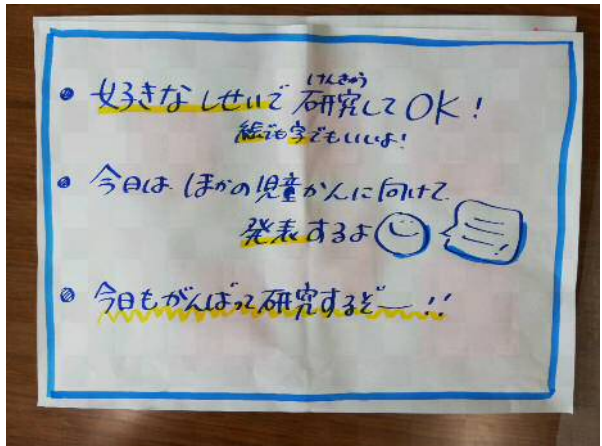 • 好きなしせいで研究してOK!
けんきゅう
絵でも字でもいいよ!
• 今日は、ほかの児童かんに向けて
発表するよ
• 今日もがんばって研究するぞー!!